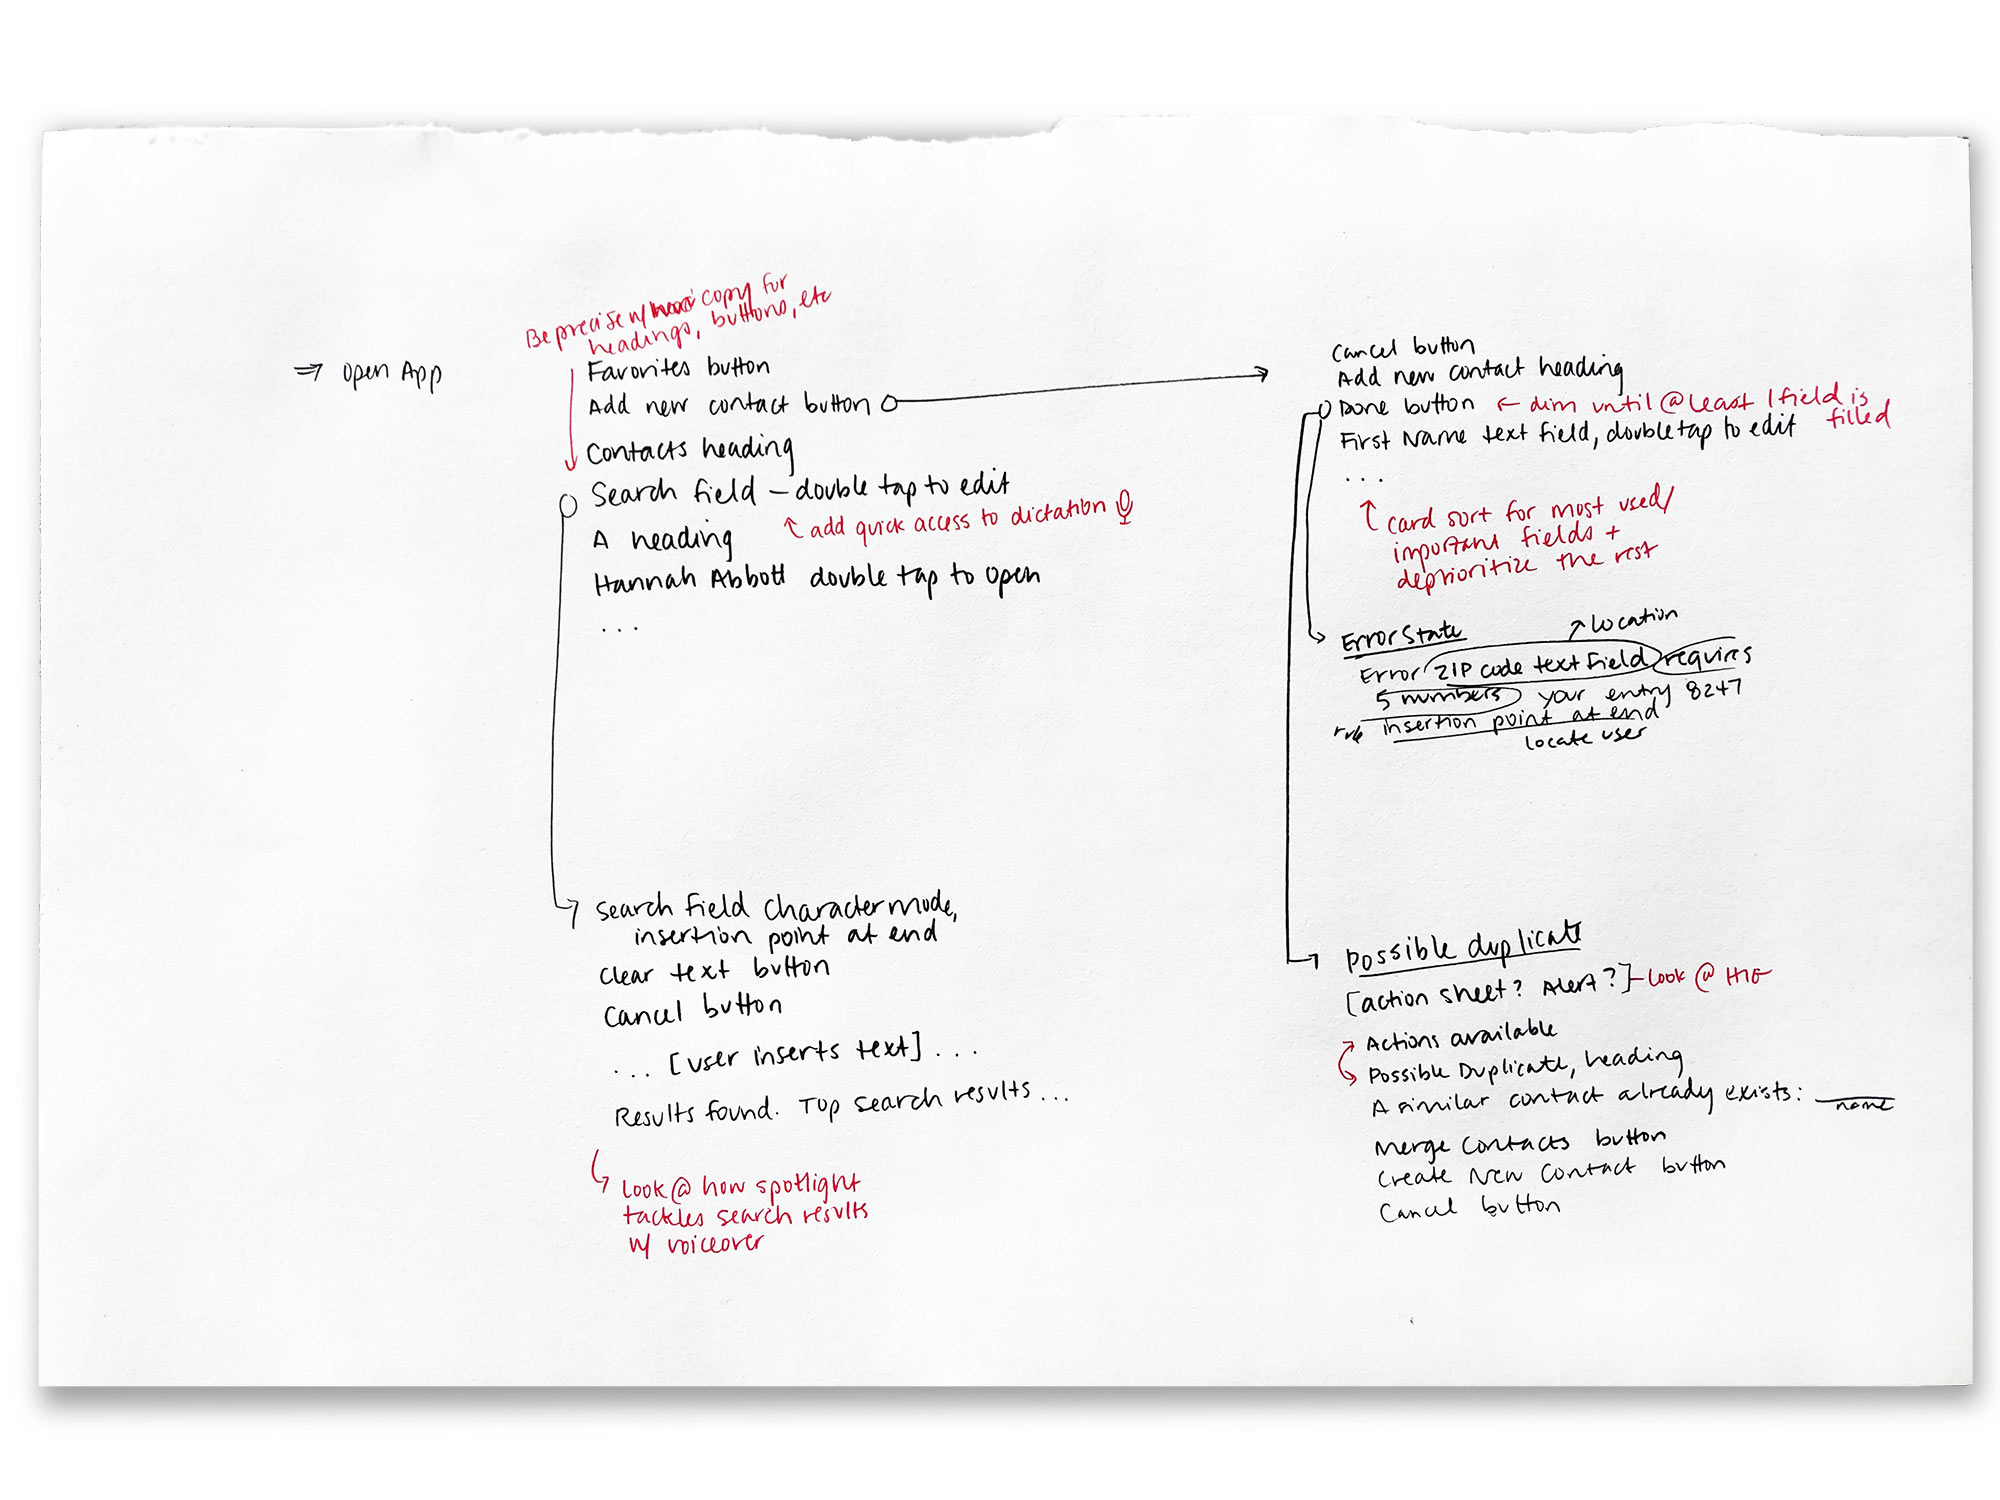 ⇒ open App
Be precise w/ copy for
headings, buttons, etc
Favorites button
Add new contact button
Contacts heading
Search field – double tap to edit
↖ add quick access to dictation
A heading
Hannah Abbott double tap to open
...
Search field character mode,
insertion point at end
Clear text button
Cancel button
... [user inserts text] ...
Results found. Top search results ...
look @ how spotlight
tackles search results
w/ voiceover
Cancel button
Add new contact heading
Done button ← dim until @ least 1 field is
filled
First Name text field, double tap to edit
...
card sort for most used/
important fields +
deprioritize the rest
Error State
↗ location
Error ZIP code text field requires
5 numbers your entry 8247
rule insertion point at end
locate user
Possible duplicate
[action sheet? Alert?] – look @ HIG
Actions available
Possible Duplicate, heading
A similar contact already exists: name
Merge Contacts button
Create New Contact button
Cancel button